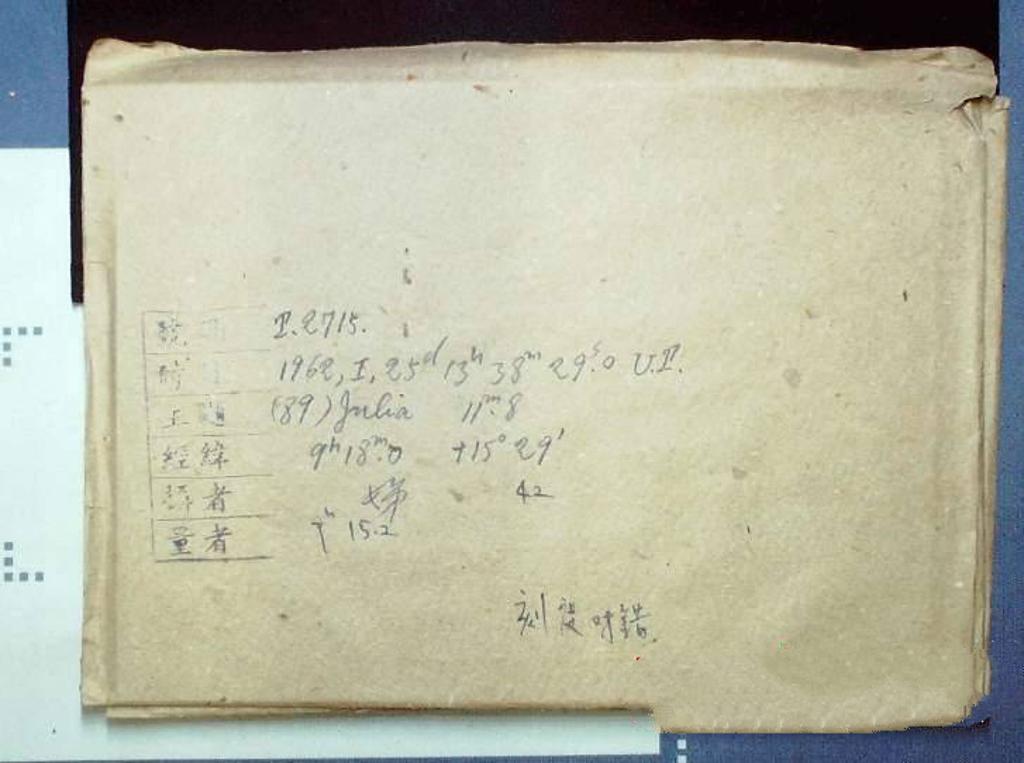 號 P.2715.
時 1962, I, 25ᵈ 13ʰ 38ᵐ 29ˢ.0 U.T.
(89) Julia 11ᵐ.8
經緯 9ʰ18ᵐ.0 +15°29′
者 42
量者 15.2
刻度 錯.